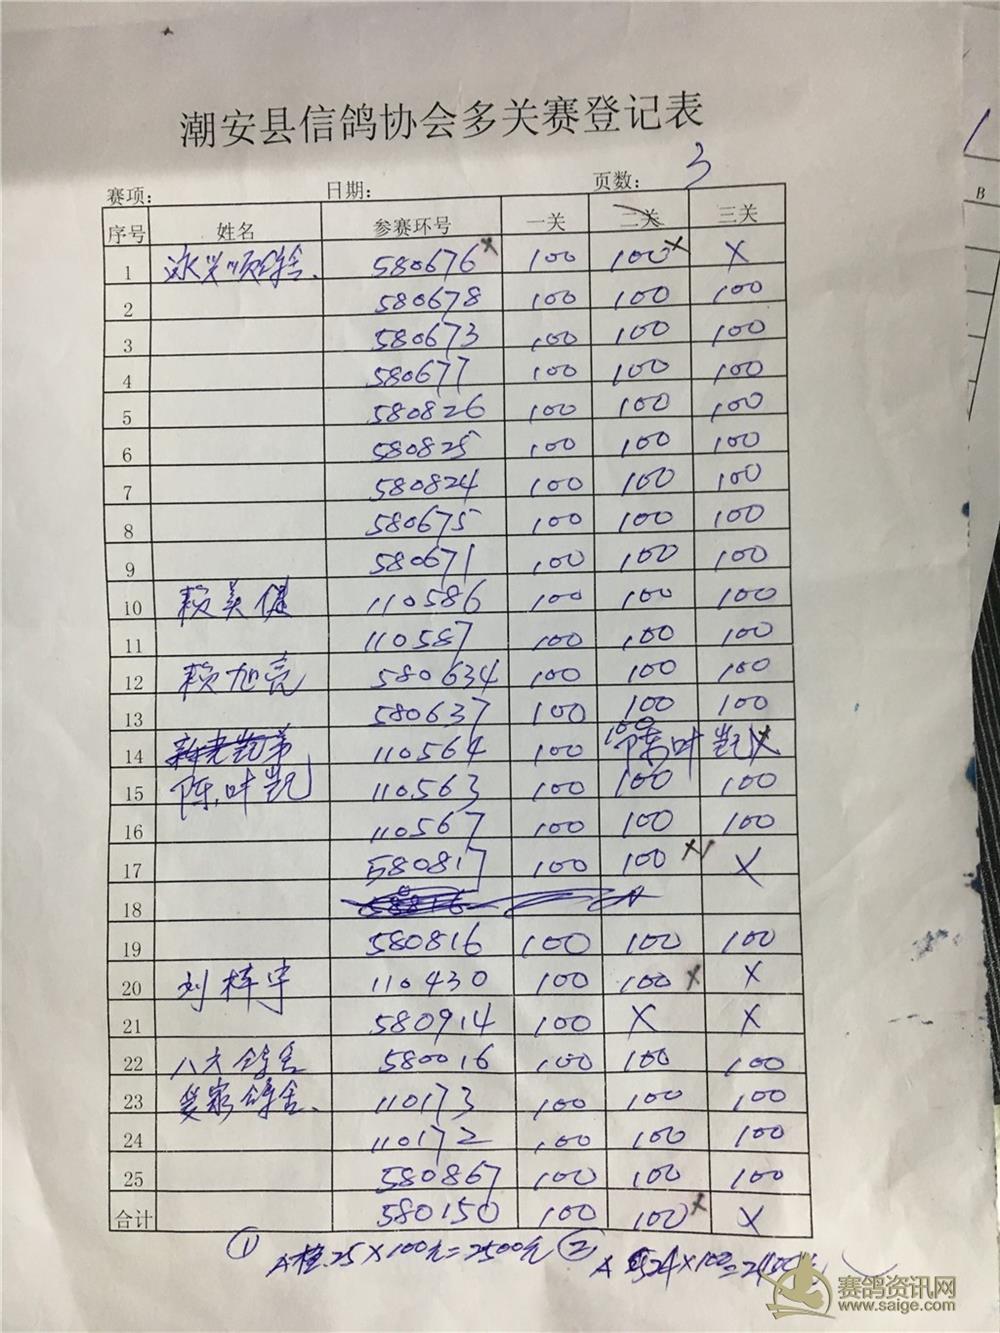 潮安县信鸽协会多关赛登记表
赛项： 日期： 页数： 3
序号 姓名 参赛环号 一关 二关 三关
1 永兴顺鸽舍. 580676 x 100 100 x X
2 580678 100 100 100
3 580673 100 100 100
4 580677 100 100 100
5 580826 100 100 100
6 580825 100 100 100
7 580824 100 100 100
8 580675 100 100 100
9 580671 100 100 100
10 赖美健 110586 100 100 100
11 110587 100 100 100
12 赖旭亮 580634 100 100 100
13 580637 100 100 100
14 110564 100 100 陈叶凯 X
15 陈叶凯 110563 100 100 100
16 110567 100 100 100
17 580817 100 100 x X
18
19 580816 100 100 100
20 刘梓宇 110430 100 100 x X
21 580914 100 X X
22 八六鸽舍 580016 100 100 100
23 家鸽舍. 110173 100 100 100
24 110172 100 100 100
25 580867 100 100 100
合计 580150 100 100 x X
① A 25×100元=2500元 ② A 24×100=
B
赛鸽资讯网
www.saige.com